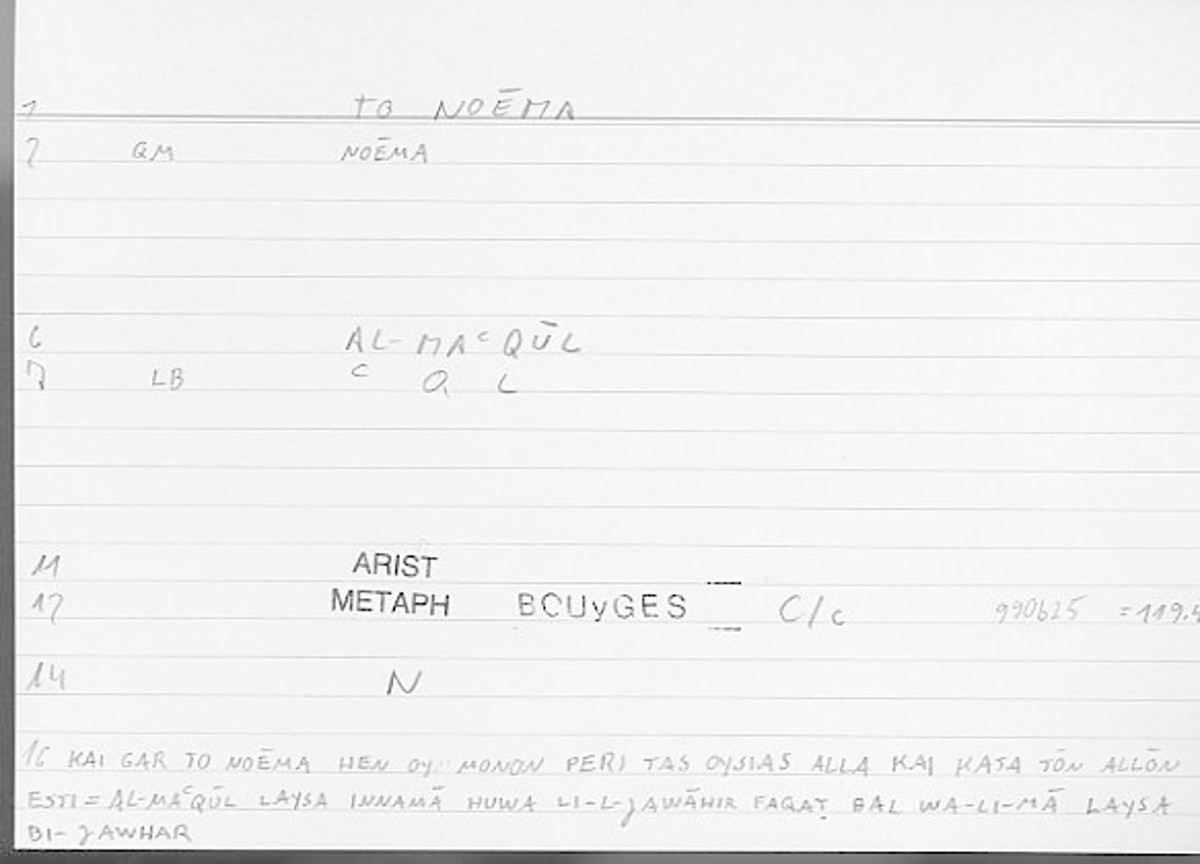 1 TO NOĒMA
2 QM NOĒMA
6 AL-MAᶜQŪL
7 LB ᶜ Q L
11 ARIST
12 METAPH BOUyGES C/c 990b25 =119.
14 N
16 KAI GAR TO NOĒMA HEN OY MONON PERI TAS OYSIAS ALLA KAI KATA TŌN ALLŌN
ESTI = AL-MAᶜQŪL LAYSA INNAMĀ HUWA LI-L-JAWĀHIR FAQAṬ BAL WA-LI-MĀ LAYSA
BI-JAWHAR